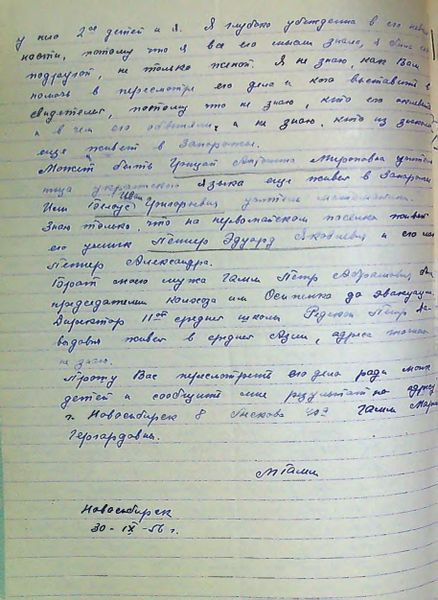 у него 2ое детей и я. Я глубоко убеждена в его неви
ности, потому что я все его мысли знала, я была его
подругой, не только женой. Я не знаю, как Вам
помочь в пересмотре его дела и кого выставить в
свидетели, потому что не знаю, кто его
и в чем его обвиняли, и не знаю, кто из знакомых
еще живет в Запорожьи.
Может быть Грицай Антонина Мироновна учитель
ница украинского языка еще живет в Запорожьи
Или Белоус Иван Григорьевич учитель математики.
Знаю только, что на первомайском поселке живет
его ученик Петкер Эдуард Яковлевич и его мать
Петкер Александра.
Брат моего мужа Гамм Петр Абрамович был
председателем колхоза им Осипенко до эвакуации.
Директор 11ой средней школы Редькой Петр Да
выдович живет в средней Азии, адреса точного
не знаю.
Прошу Вас пересмотреть его дело ради моих
детей и сообщите мне результат по адресу
г. Новосибирск 8 403 Гамм Мария
Гергардовна.
МГамм
Новосибирск
30-IX-56 г.